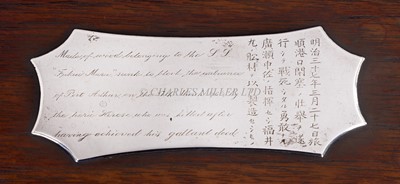 Made of wood belonging to the S.S.
"Fukui Maru" sunk to block the entrance
of Port Arthur on
the hero Hirose who was killed after
having achieved his gallant deed
© CHARLES MILLER LTD
明治三十七年三月二十七日旅
順港口閉塞ノ壮挙ヲ遂
行シテ戦死シタル勇敢ナル
廣瀬中佐ノ指揮セシ福井
丸ノ船材ヲ以テ製造セシモノ